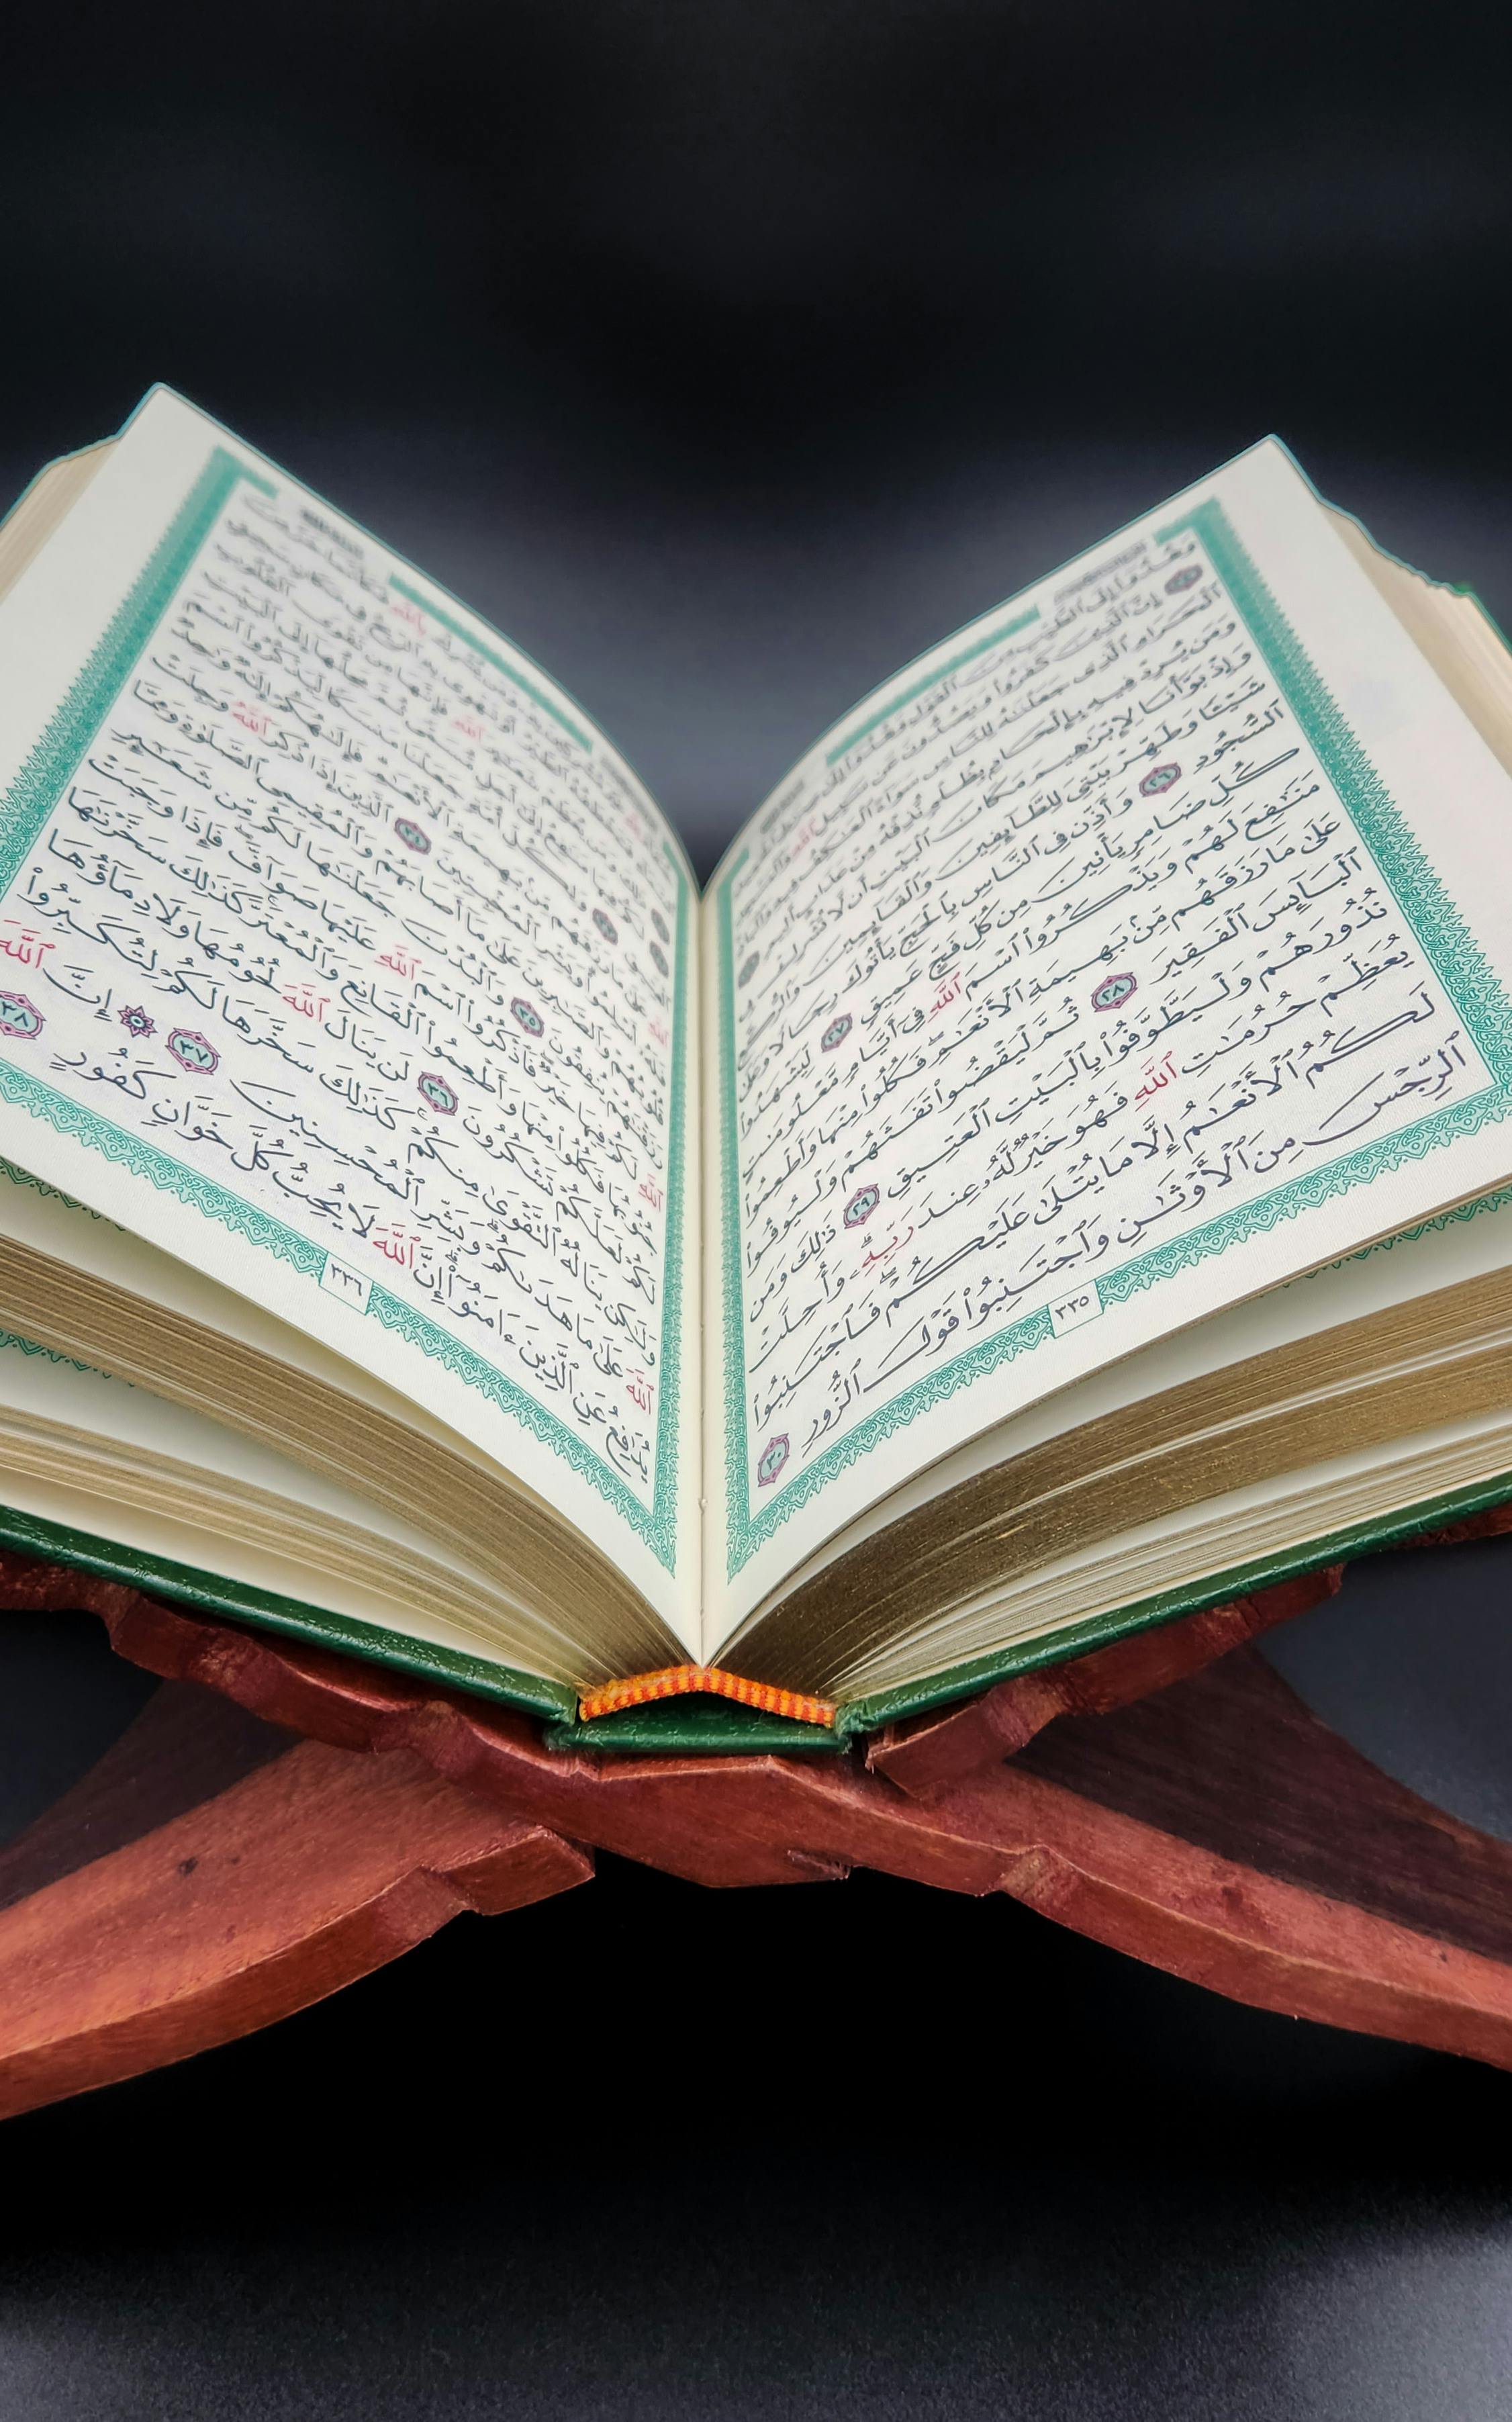 وَهُدُوٓا۟ إِلَى ٱلطَّيِّبِ مِنَ ٱلْقَوْلِ وَهُدُوٓا۟ إِلَىٰ
٢٤ إِنَّ ٱلَّذِينَ كَفَرُوا۟ وَيَصُدُّونَ عَن سَبِيلِ ٱللَّهِ
ٱلْحَرَامِ ٱلَّذِى جَعَلْنَٰهُ لِلنَّاسِ سَوَآءً ٱلْعَٰكِفُ فِيهِ وَٱلْبَادِ
وَمَن يُرِدْ فِيهِ بِإِلْحَادٍۭ بِظُلْمٍ نُّذِقْهُ مِنْ عَذَابٍ أَلِيمٍ ٢٥
وَإِذْ بَوَّأْنَا لِإِبْرَٰهِيمَ مَكَانَ ٱلْبَيْتِ أَن لَّا تُشْرِكْ بِى
شَيْـًٔا وَطَهِّرْ بَيْتِىَ لِلطَّآئِفِينَ وَٱلْقَآئِمِينَ وَٱلرُّكَّعِ
ٱلسُّجُودِ ٢٦ وَأَذِّن فِى ٱلنَّاسِ بِٱلْحَجِّ يَأْتُوكَ رِجَالًا وَعَلَىٰ
كُلِّ ضَامِرٍ يَأْتِينَ مِن كُلِّ فَجٍّ عَمِيقٍ ٢٧ لِّيَشْهَدُوا۟
مَنَٰفِعَ لَهُمْ وَيَذْكُرُوا۟ ٱسْمَ ٱللَّهِ فِىٓ أَيَّامٍ مَّعْلُومَٰتٍ
عَلَىٰ مَا رَزَقَهُم مِّنۢ بَهِيمَةِ ٱلْأَنْعَٰمِ فَكُلُوا۟ مِنْهَا وَأَطْعِمُوا۟
ٱلْبَآئِسَ ٱلْفَقِيرَ ٢٨ ثُمَّ لْيَقْضُوا۟ تَفَثَهُمْ وَلْيُوفُوا۟
نُذُورَهُمْ وَلْيَطَّوَّفُوا۟ بِٱلْبَيْتِ ٱلْعَتِيقِ ٢٩ ذَٰلِكَ وَمَن
يُعَظِّمْ حُرُمَٰتِ ٱللَّهِ فَهُوَ خَيْرٌ لَّهُۥ عِندَ رَبِّهِۦ وَأُحِلَّتْ
لَكُمُ ٱلْأَنْعَٰمُ إِلَّا مَا يُتْلَىٰ عَلَيْكُمْ فَٱجْتَنِبُوا۟
ٱلرِّجْسَ مِنَ ٱلْأَوْثَٰنِ وَٱجْتَنِبُوا۟ قَوْلَ ٱلزُّورِ ٣٠
٣٣٥
وَمَن يُشْرِكْ بِٱللَّهِ فَكَأَنَّمَا خَرَّ مِنَ
ٱلطَّيْرُ أَوْ تَهْوِى بِهِ ٱلرِّيحُ فِى مَكَانٍ سَحِيقٍ
ٱللَّهِ فَإِنَّهَا مِن تَقْوَى ٱلْقُلُوبِ
إِلَىٰٓ أَجَلٍ مُّسَمًّى ثُمَّ مَحِلُّهَآ إِلَى ٱلْبَيْتِ
أُمَّةٍ جَعَلْنَا مَنسَكًا لِّيَذْكُرُوا۟ ٱسْمَ
مِّنۢ بَهِيمَةِ ٱلْأَنْعَٰمِ فَإِلَٰهُكُمْ إِلَٰهٌ وَٰحِدٌ
أَسْلِمُوا۟ وَبَشِّرِ ٱلْمُخْبِتِينَ ٣٤ ٱلَّذِينَ إِذَا ذُكِرَ ٱللَّهُ وَجِلَتْ
وَٱلصَّٰبِرِينَ عَلَىٰ مَآ أَصَابَهُمْ وَٱلْمُقِيمِى ٱلصَّلَوٰةِ وَمِمَّا
يُنفِقُونَ ٣٥ وَٱلْبُدْنَ جَعَلْنَٰهَا لَكُم مِّن شَعَٰٓئِرِ
خَيْرٌ فَٱذْكُرُوا۟ ٱسْمَ ٱللَّهِ عَلَيْهَا صَوَآفَّ فَإِذَا وَجَبَتْ
جُنُوبُهَا فَكُلُوا۟ مِنْهَا وَأَطْعِمُوا۟ ٱلْقَانِعَ وَٱلْمُعْتَرَّ كَذَٰلِكَ سَخَّرْنَٰهَا
لَكُمْ لَعَلَّكُمْ تَشْكُرُونَ ٣٦ لَن يَنَالَ ٱللَّهَ لُحُومُهَا وَلَا دِمَآؤُهَا
وَلَٰكِن يَنَالُهُ ٱلتَّقْوَىٰ مِنكُمْ كَذَٰلِكَ سَخَّرَهَا لَكُمْ لِتُكَبِّرُوا۟
ٱللَّهَ عَلَىٰ مَا هَدَىٰكُمْ وَبَشِّرِ ٱلْمُحْسِنِينَ ٣٧ ۞ إِنَّ ٱللَّهَ
يُدَٰفِعُ عَنِ ٱلَّذِينَ ءَامَنُوٓا۟ إِنَّ ٱللَّهَ لَا يُحِبُّ كُلَّ خَوَّانٍ كَفُورٍ ٣٨
٣٣٦